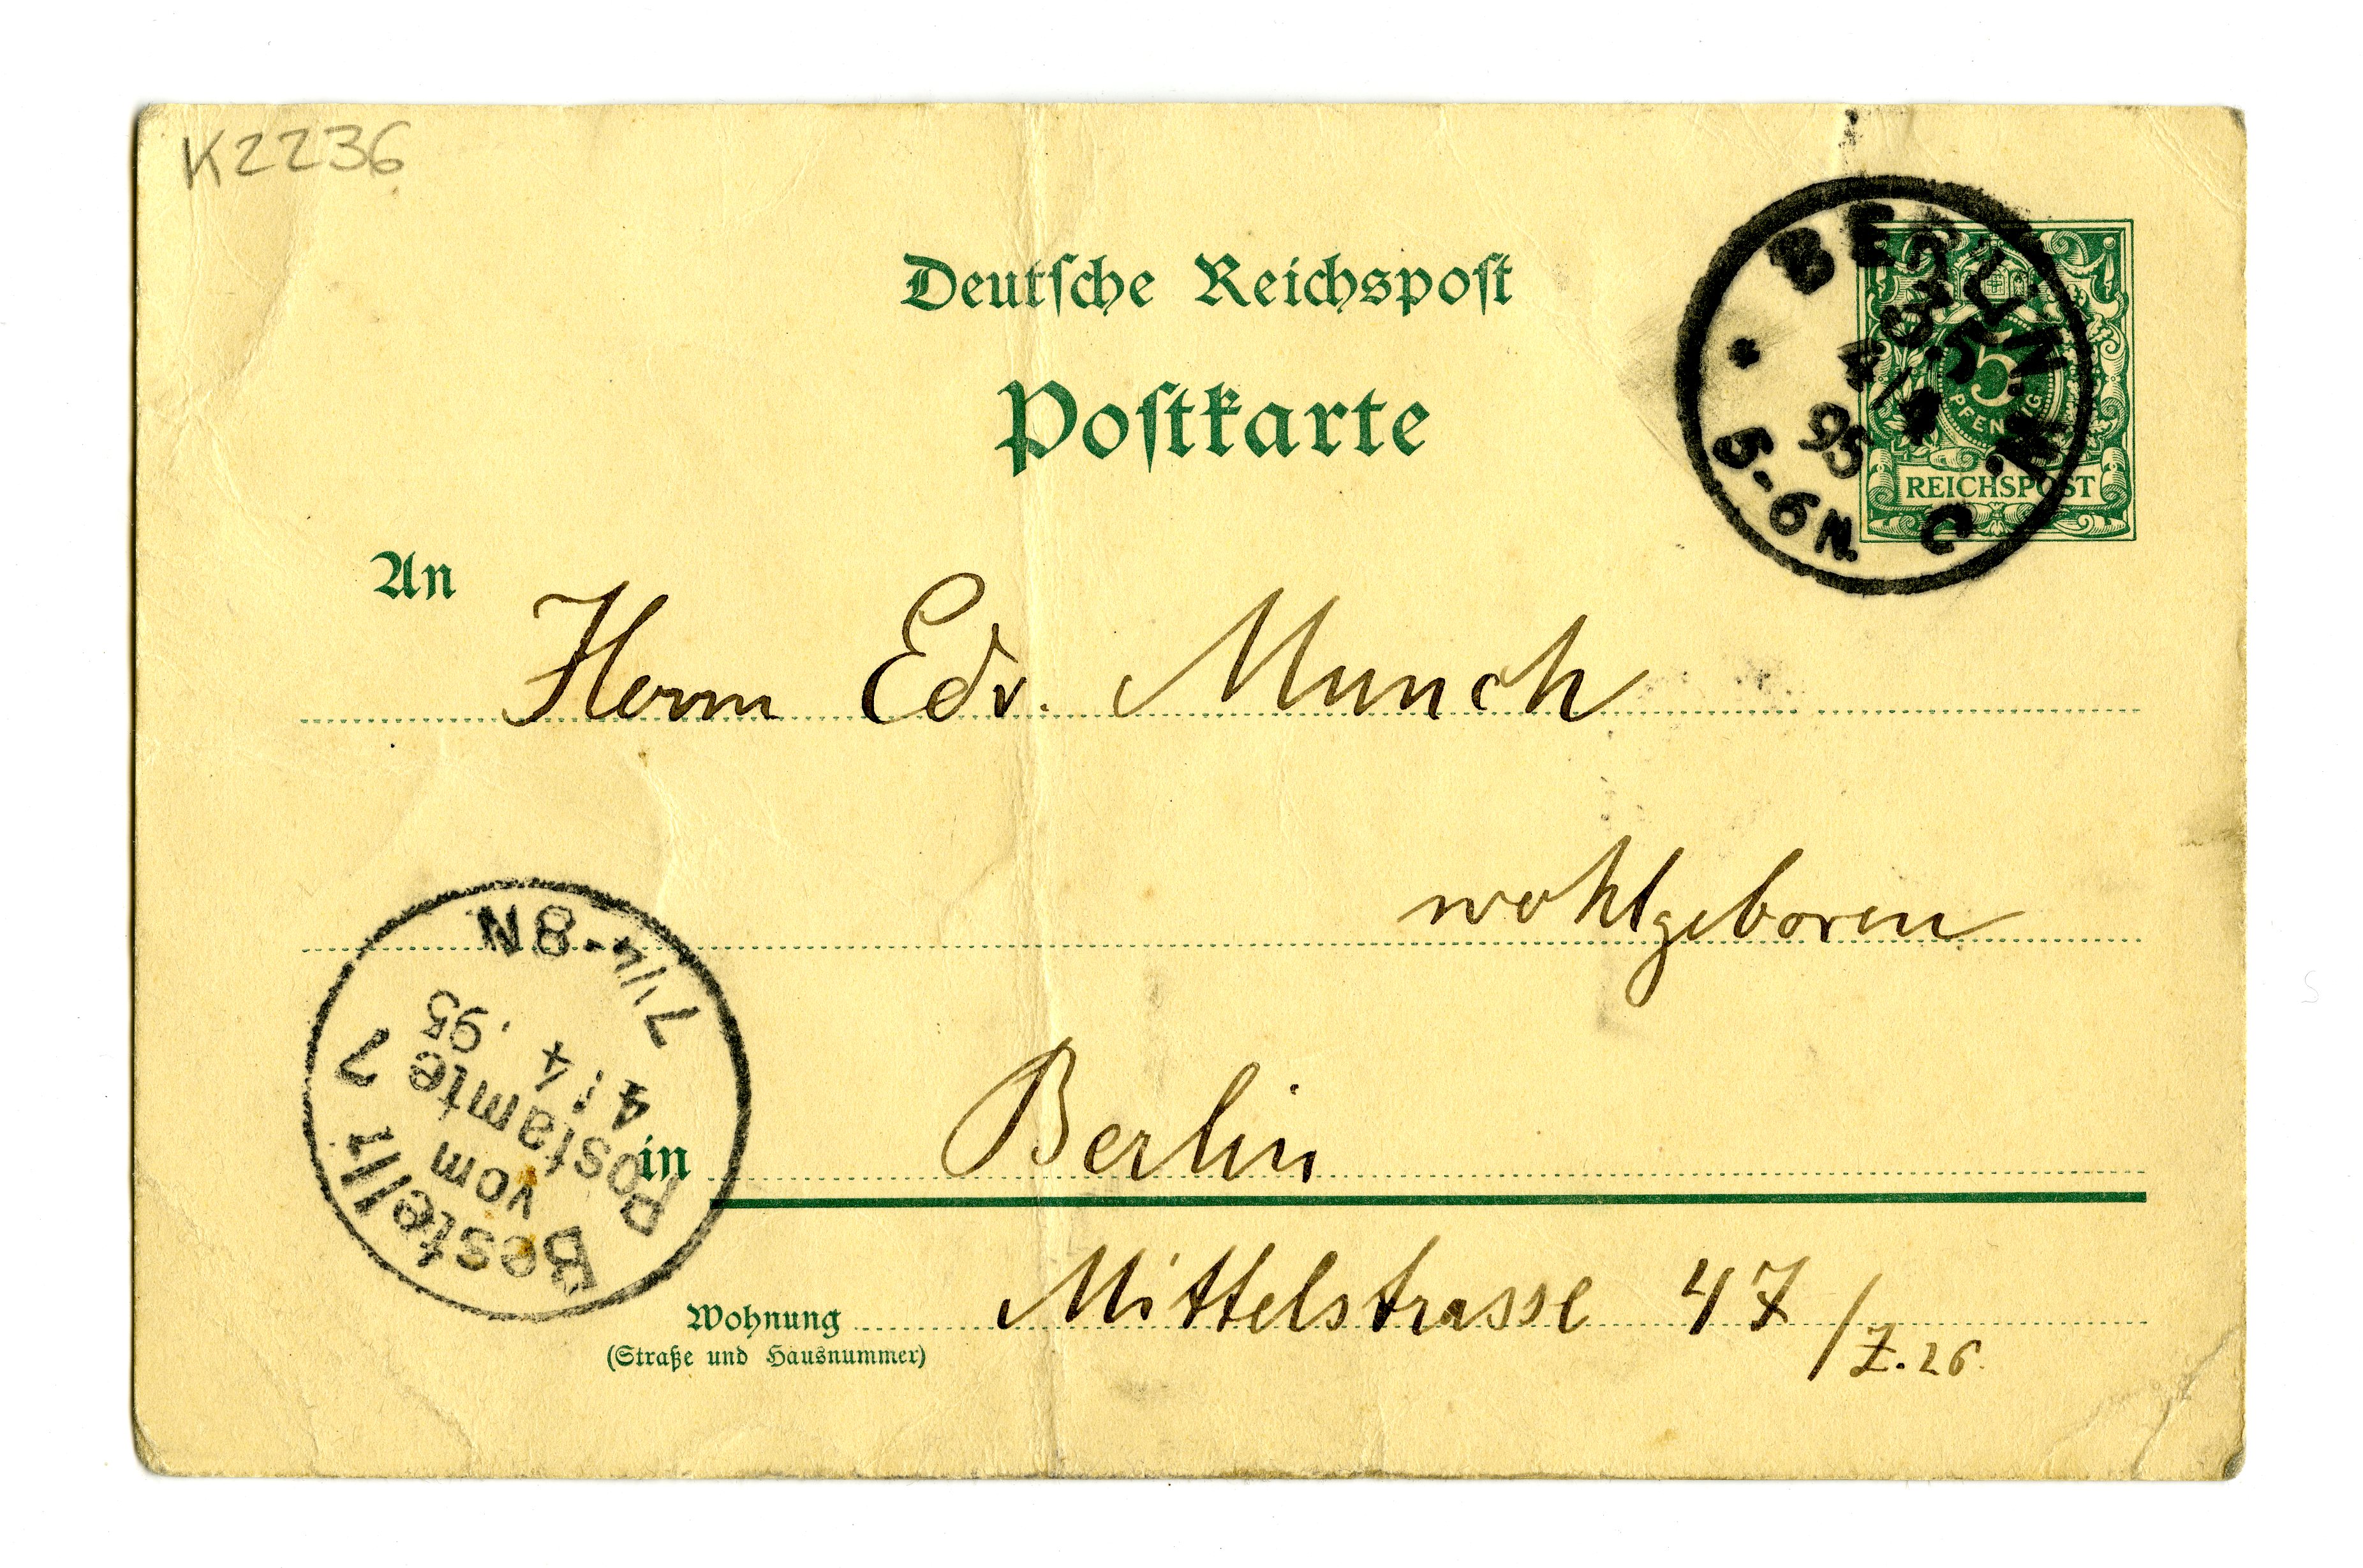 K2236
Deutsche Reichspost
Postkarte
BERLIN C
4/4
95
5-6N.
5
PFENNIG
REICHSPOST
An
Herrn Edv. Munch
wohlgeboren
in Berlin
Mittelstrasse 47/Z. 26.
Wohnung
(Straße und Hausnummer)
Bestellt
vom
Postamte 7
4/4
.95
7 1/4-8N